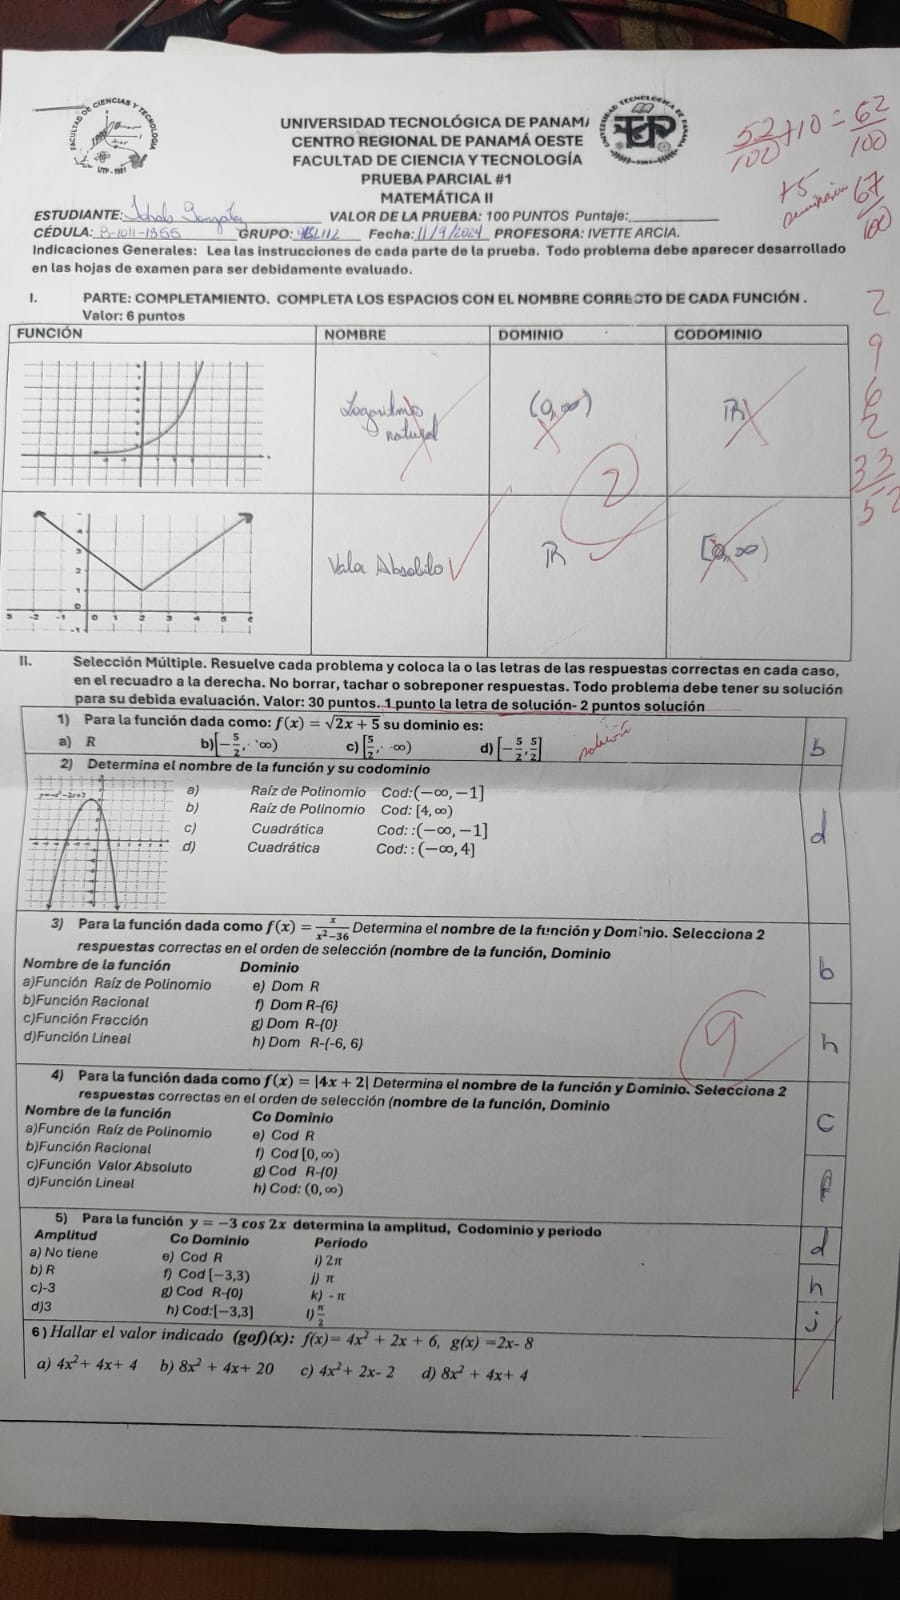 FACULTAD DE CIENCIAS Y TECNOLOGÍA
UTP - 1981
UNIVERSIDAD TECNOLÓGICA DE PANAMÁ
CENTRO REGIONAL DE PANAMÁ OESTE
FACULTAD DE CIENCIA Y TECNOLOGÍA
PRUEBA PARCIAL #1
MATEMÁTICA II
52/100 + 10 = 62/100
+5
67/100
ESTUDIANTE: González VALOR DE LA PRUEBA: 100 PUNTOS Puntaje:
CÉDULA: GRUPO: Fecha: 11/9/2024 PROFESORA: IVETTE ARCIA.
Indicaciones Generales: Lea las instrucciones de cada parte de la prueba. Todo problema debe aparecer desarrollado
en las hojas de examen para ser debidamente evaluado.
I. PARTE: COMPLETAMIENTO. COMPLETA LOS ESPACIOS CON EL NOMBRE CORRECTO DE CADA FUNCIÓN .
Valor: 6 puntos
FUNCIÓN NOMBRE DOMINIO CODOMINIO
Logaritmo natural (0,∞) ℝ
2
9
6
2
33
52
2
Valor Absoluto ℝ [0,∞)
II. Selección Múltiple. Resuelve cada problema y coloca la o las letras de las respuestas correctas en cada caso,
en el recuadro a la derecha. No borrar, tachar o sobreponer respuestas. Todo problema debe tener su solución
para su debida evaluación. Valor: 30 puntos. 1 punto la letra de solución- 2 puntos solución
1) Para la función dada como: f(x) = √2x + 5 su dominio es:
a) R b)[−5/2, ∞) c) [5/2, ∞) d) [−5/2, 5/2] solución b
2) Determina el nombre de la función y su codominio
a) Raíz de Polinomio Cod:(−∞, −1]
b) Raíz de Polinomio Cod: [4, ∞)
c) Cuadrática Cod: :(−∞, −1]
d) Cuadrática Cod: : (−∞, 4]
d
3) Para la función dada como f(x) = x/(x²−36) Determina el nombre de la función y Dominio. Selecciona 2
respuestas correctas en el orden de selección (nombre de la función, Dominio
Nombre de la función Dominio
a)Función Raíz de Polinomio e) Dom R
b)Función Racional f) Dom R-{6}
c)Función Fracción g) Dom R-{0}
d)Función Lineal h) Dom R-{-6, 6}
b
h
9
4) Para la función dada como f(x) = |4x + 2| Determina el nombre de la función y Dominio. Selecciona 2
respuestas correctas en el orden de selección (nombre de la función, Dominio
Nombre de la función Co Dominio
a)Función Raíz de Polinomio e) Cod R
b)Función Racional f) Cod [0, ∞)
c)Función Valor Absoluto g) Cod R-{0}
d)Función Lineal h) Cod: (0, ∞)
c
f
5) Para la función y = −3 cos 2x determina la amplitud, Codominio y periodo
Amplitud Co Dominio Periodo
a) No tiene e) Cod R i) 2π
b) R f) Cod [−3,3) j) π
c)-3 g) Cod R-{0} k) - π
d)3 h) Cod:[−3,3] l) π/2
d
h
j
6) Hallar el valor indicado (gof)(x): f(x)= 4x² + 2x + 6, g(x) =2x- 8
a) 4x²+ 4x+ 4 b) 8x² + 4x+ 20 c) 4x²+ 2x- 2 d) 8x² + 4x+ 4